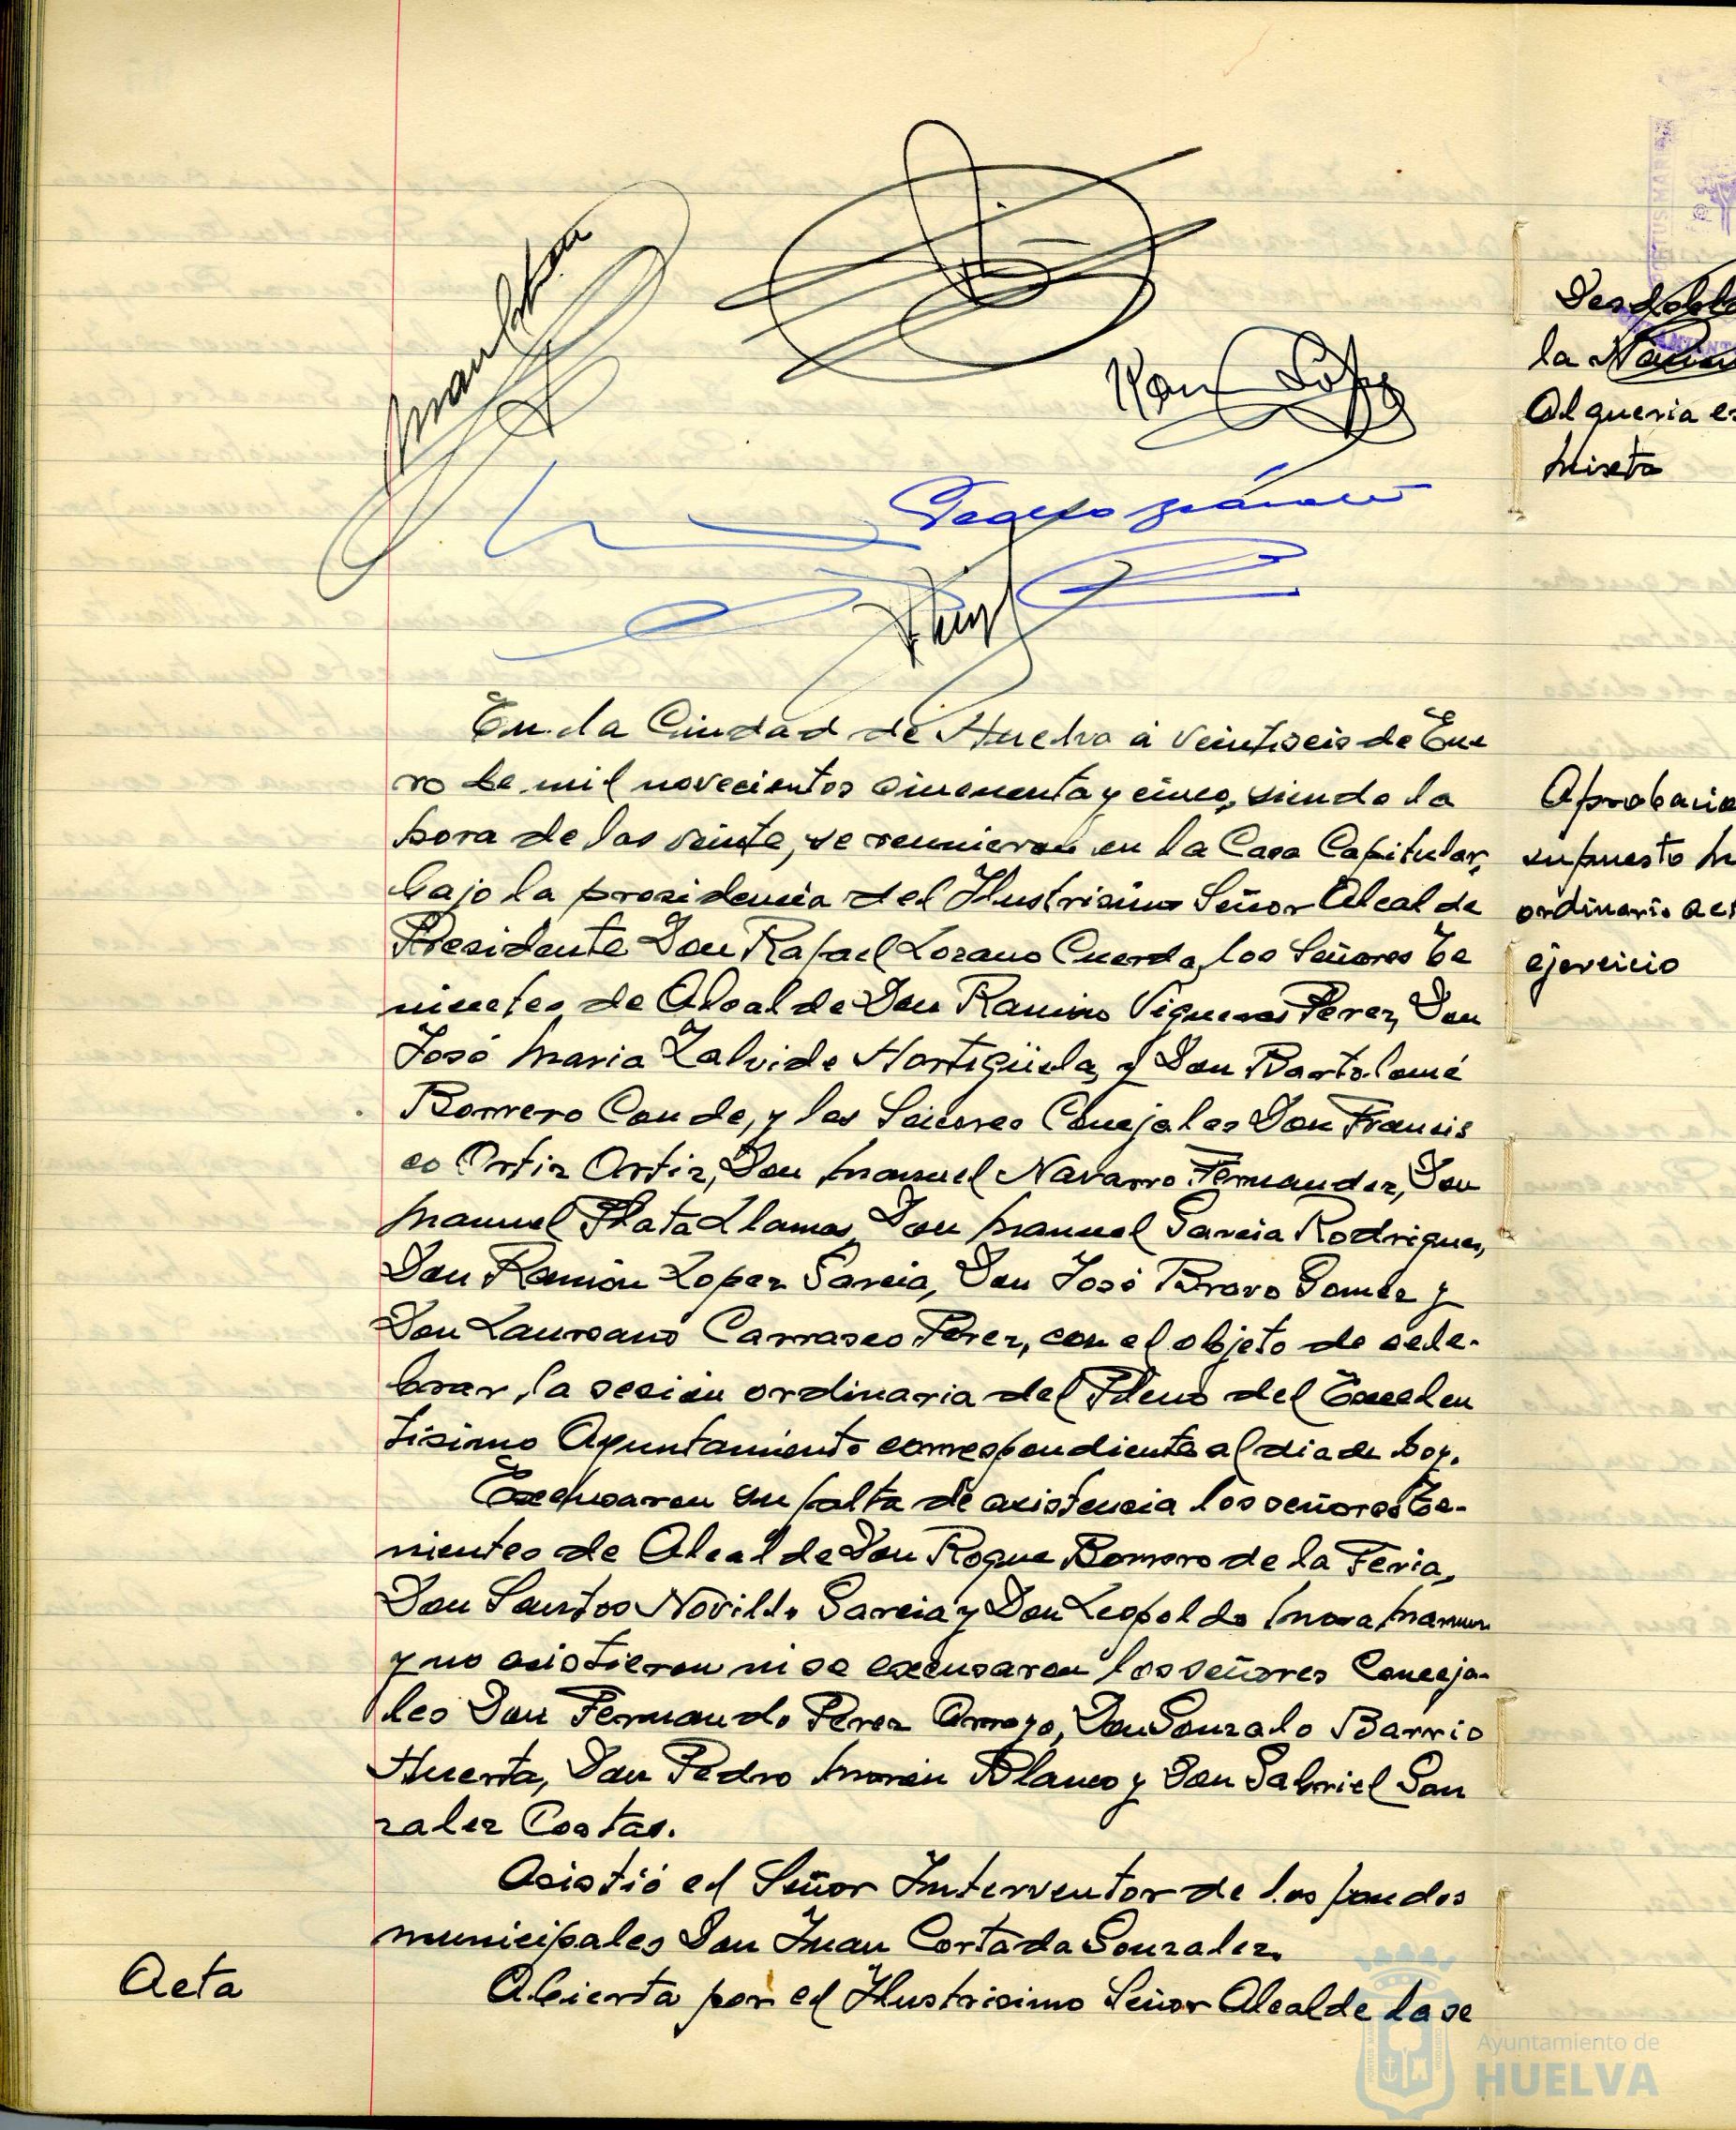 En la Ciudad de Huelva a veintiseis de Ene
ro de mil novecientos cincuenta y cinco, siendo la
hora de las veinte, se reunieron en la Casa Capitular,
bajo la presidencia del Ilustrisimo Señor Alcalde
Presidente Don Rafael Lozano Cuerda, los Señores Te
nientes de Alcalde Don Ramiro Vigueras Perez, Don
José Maria Zalvide Hortigüela, y Don Bartolomé
Romero Conde, y los Señores Concejales Don Francis
co Ortiz Ortiz, Don Manuel Navarro Fernandez, Don
Manuel Plata Llamas, Don Manuel Garcia Rodriguez,
Don Ramón Lopez Garcia, Don José Bravo Gomez y
Don Laureano Carrasco Perez, con el objeto de cele-
brar, la sesion ordinaria del Pleno del Excelen
tisimo Ayuntamiento correspondiente al dia de hoy.
Excusaron su falta de asistencia los señores Te-
nientes de Alcalde Don Roque Romero de la Feria,
Don Santos Novillo Garcia y Don Leopoldo Mora
y no asistieron ni se excusaron los señores Conceja-
les Don Fernando Perez Arroyo, Don Gonzalo Barrio
Huerta, Don Pedro Morón Blanco y Don Gabriel Gon
zalez Costas.
Asistió el Señor Interventor de los fondos
municipales Don Juan Cortada Gonzalez.
Acta
Abierta por el Ilustrisimo Señor Alcalde la se
la
Alqueria
Miseta
Aprobacio
supuesto
ordinario
ejercicio
Ayuntamiento de
HUELVA